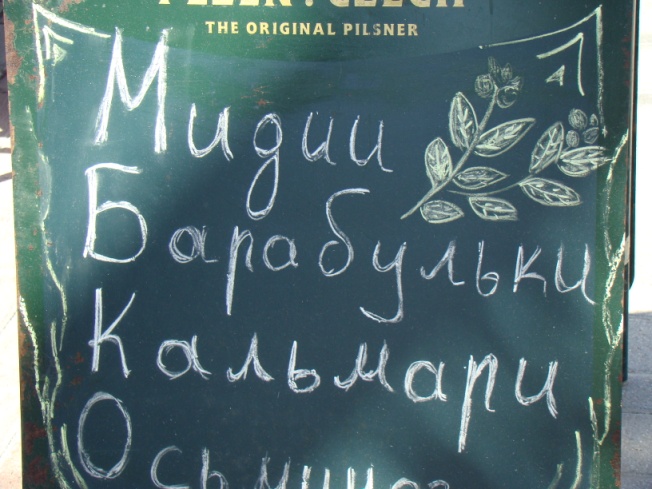 THE ORIGINAL PILSNER
Мидии
Барабульки
Кальмари